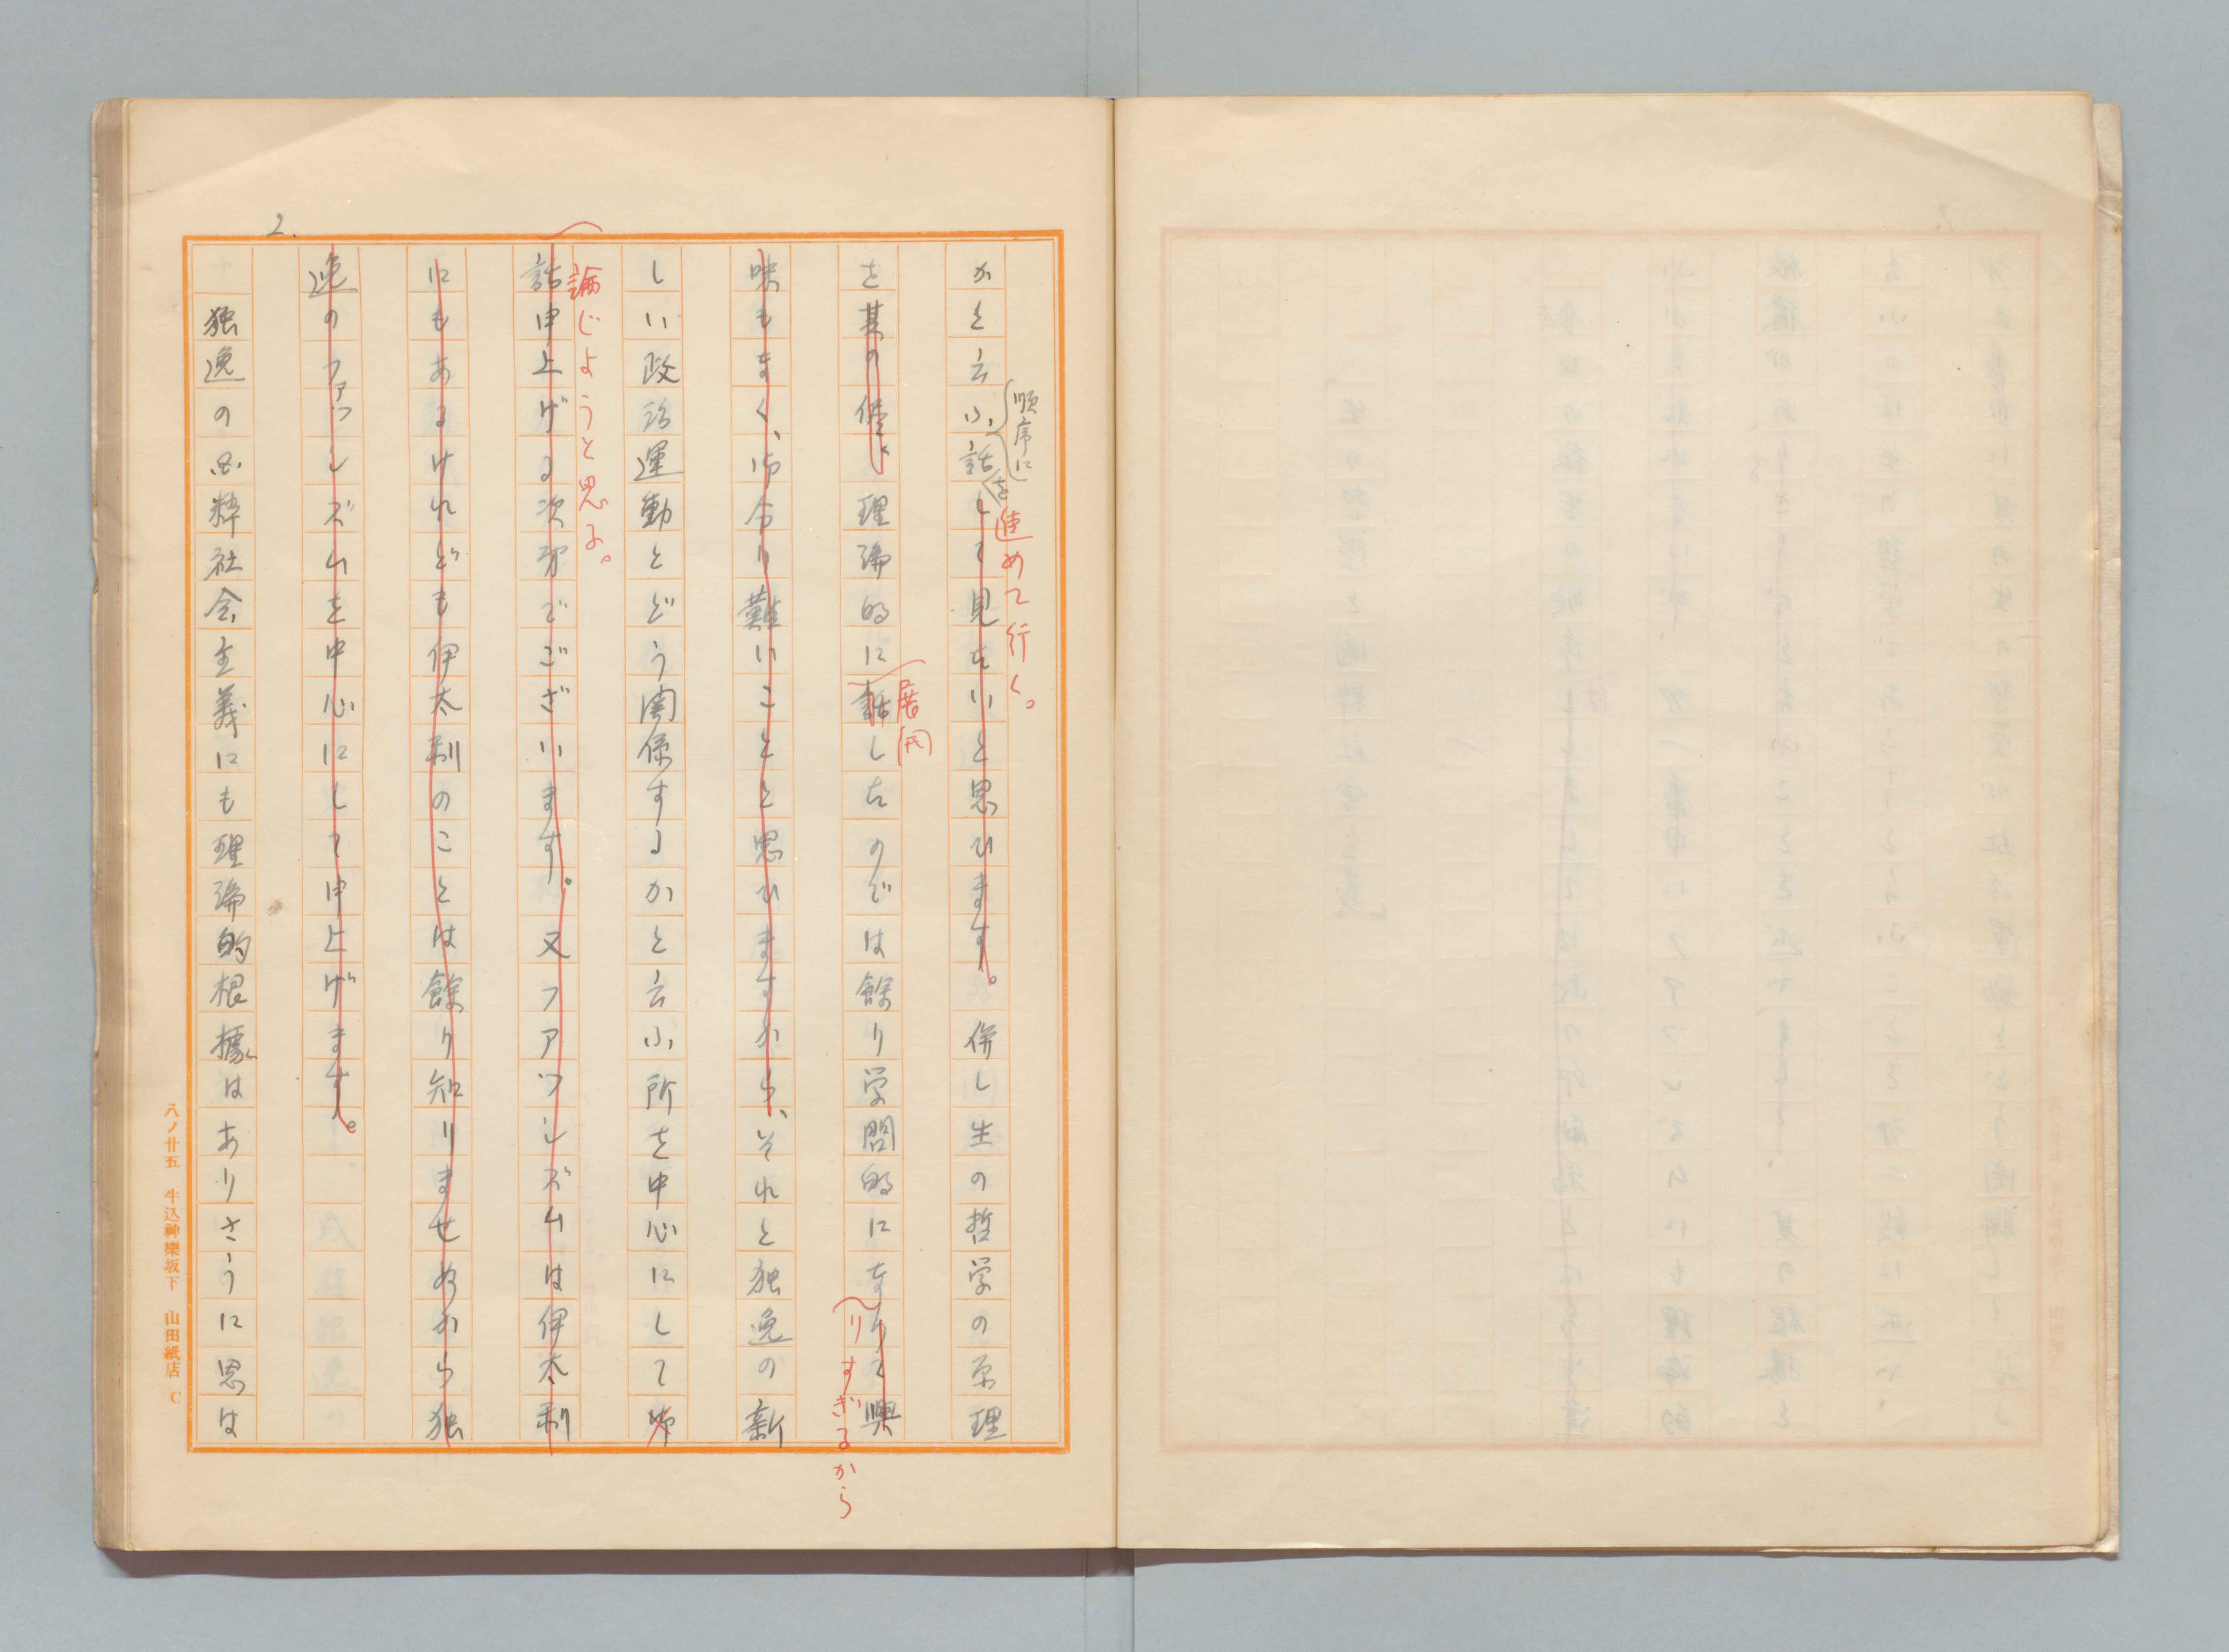 2.
かと云ふ、話して見たいと思ひます。併し生の哲学の原理
順序に
を
進めて行く。
を其の儘、理論的に話したのでは餘り学問的になりて興
展開
りすぎるから
味もなく、御分り難いことと思ひますから、それと独逸の新
しい政治運動とどう関係するかと云ふ所を中心にして御
論じようと思ふ。
話申上げる次第でございます。又ファッシズムは伊太利
にもあるけれども伊太利のことは餘り知りませぬから独
逸のファッシズムを中心にして申上げます。
独逸の国粋社会主義にも理論的根據はありさうに思は
八ノ廿五 牛込神樂坂下 山田紙店 C